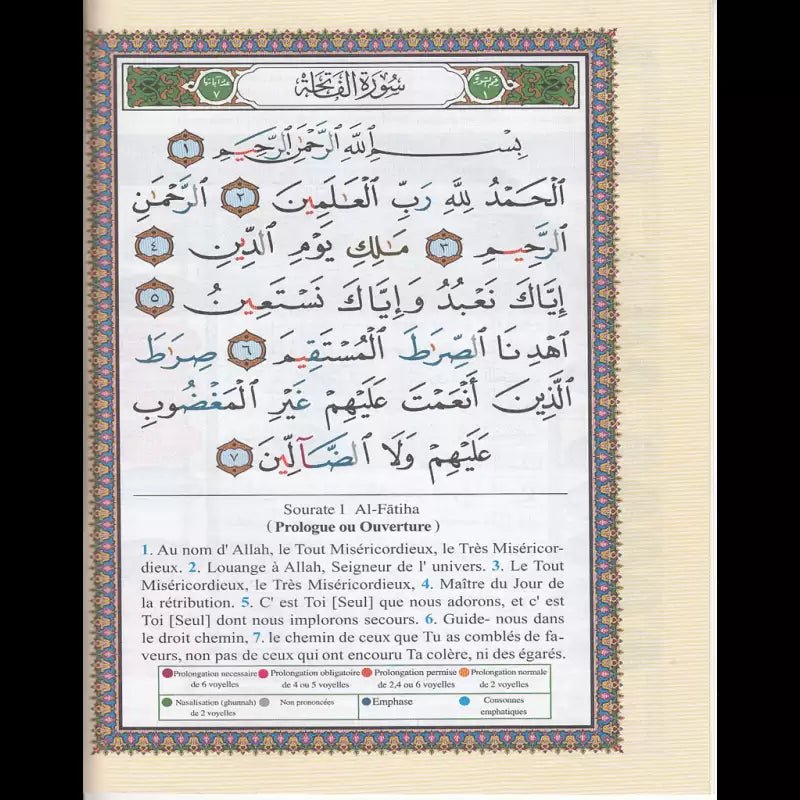 عدد آياتها ٧
سُورَةُ الفَاتِحَةِ
رقم السورة ١
بِسْمِ ٱللَّهِ ٱلرَّحْمَٰنِ ٱلرَّحِيمِ ١
ٱلْحَمْدُ لِلَّهِ رَبِّ ٱلْعَٰلَمِينَ ٢ ٱلرَّحْمَٰنِ
ٱلرَّحِيمِ ٣ مَٰلِكِ يَوْمِ ٱلدِّينِ ٤
إِيَّاكَ نَعْبُدُ وَإِيَّاكَ نَسْتَعِينُ ٥
ٱهْدِنَا ٱلصِّرَٰطَ ٱلْمُسْتَقِيمَ ٦ صِرَٰطَ
ٱلَّذِينَ أَنْعَمْتَ عَلَيْهِمْ غَيْرِ ٱلْمَغْضُوبِ
عَلَيْهِمْ وَلَا ٱلضَّآلِّينَ ٧
Sourate 1 Al-Fātiha
( Prologue ou Ouverture )
1. Au nom d' Allah, le Tout Miséricordieux, le Très Miséricor-
dieux. 2. Louange à Allah, Seigneur de l' univers. 3. Le Tout
Miséricordieux, le Très Miséricordieux, 4. Maître du Jour de
la rétribution. 5. C' est Toi [Seul] que nous adorons, et c' est
Toi [Seul] dont nous implorons secours. 6. Guide- nous dans
le droit chemin, 7. le chemin de ceux que Tu as comblés de fa-
veurs, non pas de ceux qui ont encouru Ta colère, ni des égarés.
Prolongation necessaire de 6 voyelles
Prolongation obligatoire de 4 ou 5 voyelles
Prolongation permise de 2,4 ou 6 voyelles
Prolongation normale de 2 voyelles
Nasalisation (ghunnah) de 2 voyelles
Non prononcées
Emphase
Consonnes emphatiques